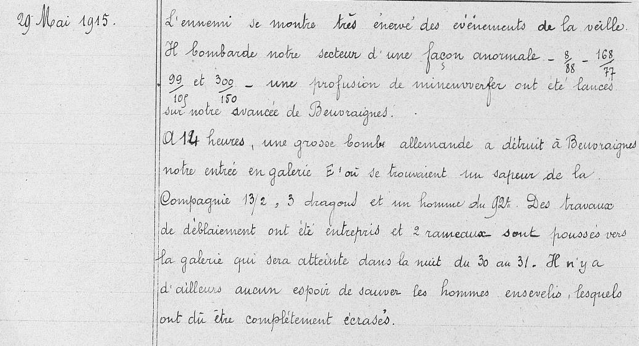 29 Mai 1915.
L'ennemi se montre très énervé des événements de la veille.
Il bombarde notre secteur d'une façon anormale - 8/88 - 168/77
99/105 et 300/150 - une profusion de minenwerfer ont été lancés
sur notre avancée de Beuvraignes.
A 14 heures, une grosse bombe allemande a détruit à Beuvraignes
notre entrée en galerie E' où se trouvaient un sapeur de la
Compagnie 13/2, 3 dragons et un homme du 92e. Des travaux
de déblaiement ont été entrepris et 2 rameaux sont poussés vers
la galerie qui sera atteinte dans la nuit du 30 au 31. Il n'y a
d'ailleurs aucun espoir de sauver les hommes ensevelis, lesquels
ont dû être complétement écrasés.